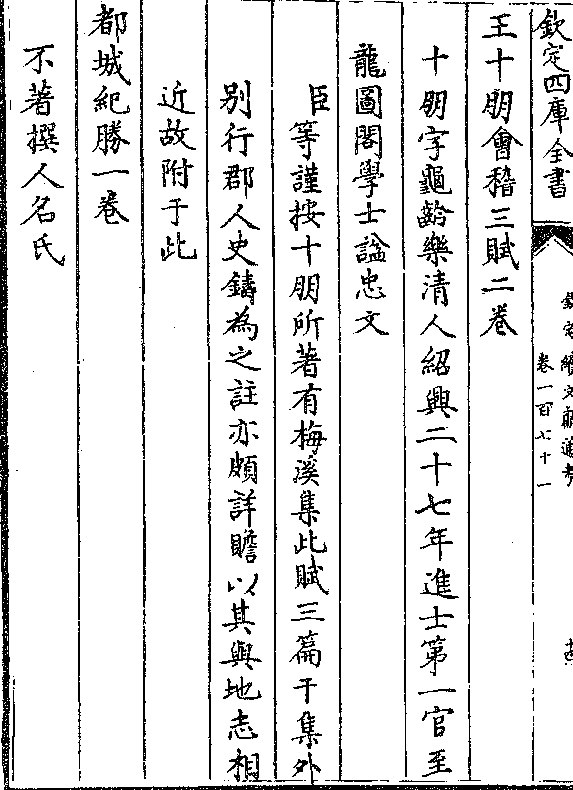 欽定四庫全書
欽定續文獻通考
卷一百七十一
王十朋會稽三賦二卷
十朋字龜齡樂清人紹興二十七年進士第一官至
龍圖閣學士諡忠文
臣等謹按十朋所著有梅溪集此賦三篇于集外
别行郡人史鑄為之註亦頗詳贍以其與地志相
近故附于此
都城紀勝一卷
不著撰人名氏